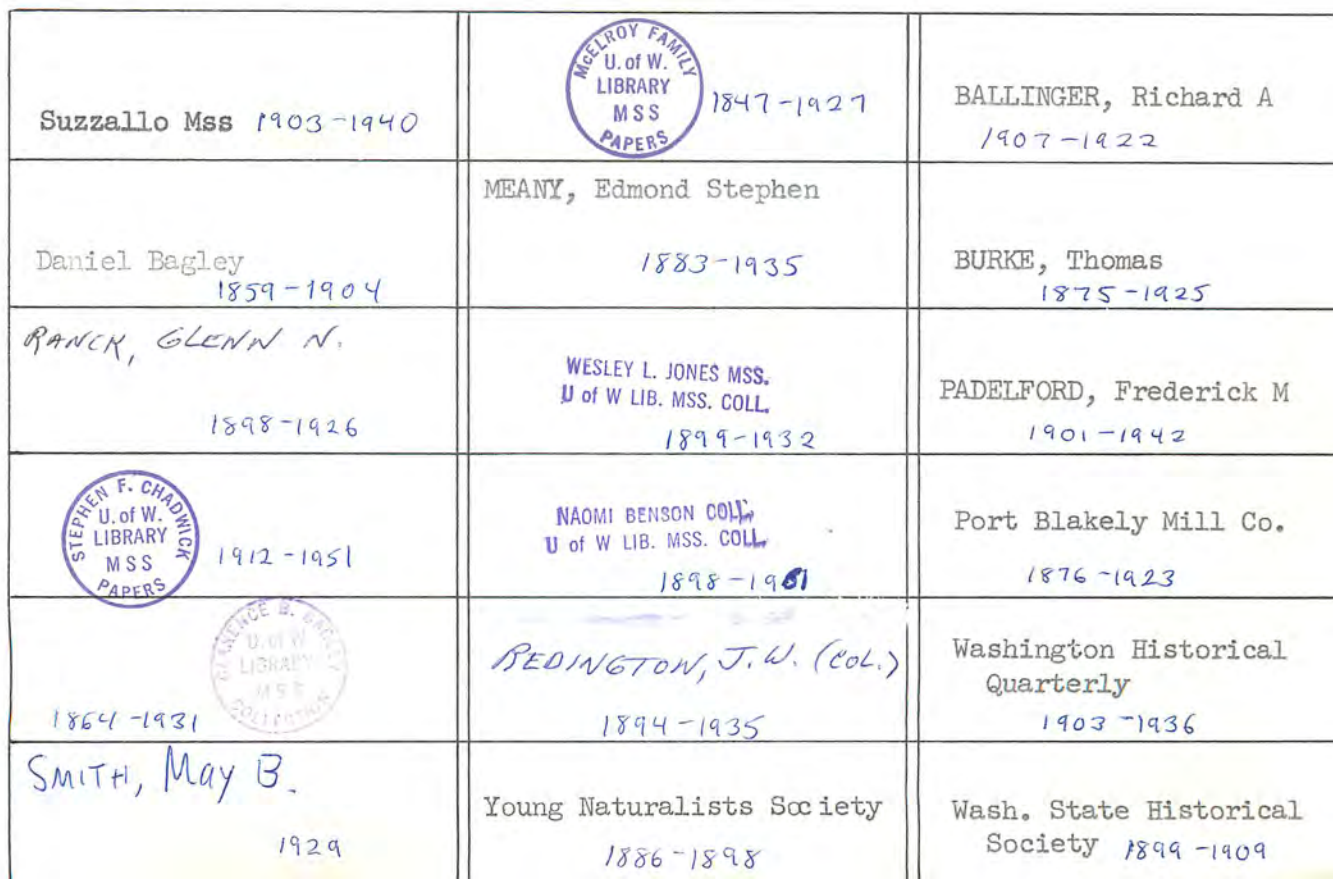 Suzzallo Mss 1903-1940
McELROY FAMILY
U. of W.
LIBRARY
MSS
PAPERS
1847-1927
BALLINGER, Richard A
1907-1922
Daniel Bagley
1859-1904
MEANY, Edmond Stephen
1883-1935
BURKE, Thomas
1875-1925
RANCK, GLENN N.
1898-1926
WESLEY L. JONES MSS.
U of W LIB. MSS. COLL.
1899-1932
PADELFORD, Frederick M
1901-1942
STEPHEN F. CHADWICK
U. of W.
LIBRARY
MSS
PAPERS
1912-1951
NAOMI BENSON COLL.
U of W LIB. MSS. COLL.
1898-1961
Port Blakely Mill Co.
1876-1923
CLARENCE B. BAGLEY
U. of W
LIBRARY
MSS
COLLECTION
1864-1931
REDINGTON, J.W. (COL.)
1894-1935
Washington Historical
Quarterly
1903-1936
SMITH, May B.
1929
Young Naturalists Society
1886-1898
Wash. State Historical
Society 1899-1909